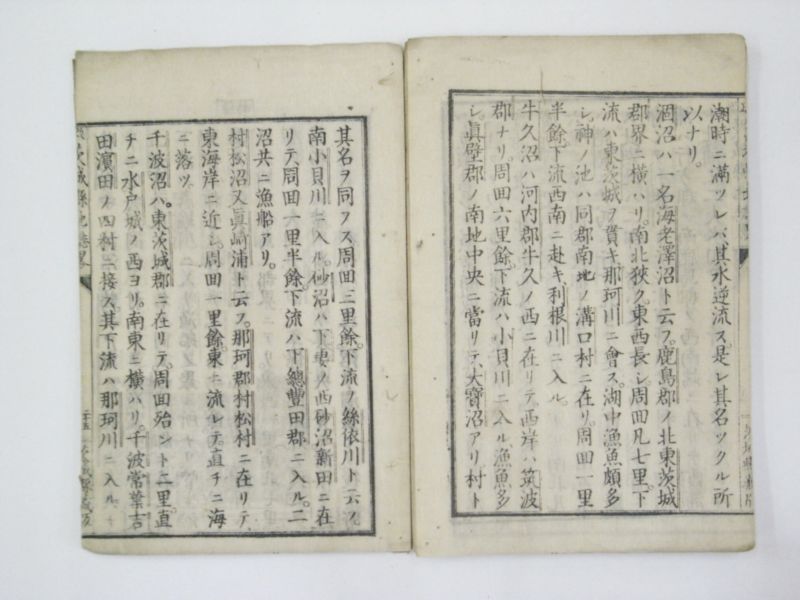 潮時ニ滿ツレバ、其水逆流ス。是レ其名ヅクル所
以ナリ。
涸沼ハ一名海老澤沼ト云フ。鹿島郡ノ北東茨城
郡界ニ横ハリ。南北狹ク。東西長シ周回凡七里。下
流ハ東茨城ヲ貫キ那珂川ニ會ス。湖中漁魚頗多
シ神ノ池ハ同郡南地ノ溝口村ニ在リ。周回一里
半餘下流西南ニ赴キ、利根川ニ入ル。
牛久沼ハ河内郡牛久ノ西ニ在リテ。西岸ハ筑波
郡ナリ。周回六里餘。下流ハ小貝川ニ入ル。漁魚多
シ。眞壁郡ノ南地中央ニ當リテ、大寶沼アリ村ト
其名ヲ同フス周回三里餘。下流ノ絲依川ト云フ
南小貝川ニ入ル。砂沼ハ下妻ノ西砂沼新田ニ在
リテ、周回一里半餘下流ハ下總豐田郡ニ入ル。二
沼共ニ漁船アリ。
村松沼又眞崎浦ト云フ。那珂郡村松村ニ在リテ
東海岸ニ近シ。周回一里餘東ニ流レテ直チニ海
ニ落ツ。
千波沼ハ。東茨城郡ニ在リテ。周回殆ント二里。直
チニ水戸城ノ西ヨリ。南東ニ横ハリ。千波常葉吉
田濱田ノ四村ニ接ス。其下流ハ那珂川ニ入ル
茨城縣地誌略